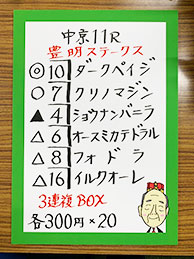 中京11R
豊明ステークス
◎10 ダークペイジ
○7 クリノマジン
▲4 ショウナンバニラ
△6 オースミカテドラル
△8 フォドラ
△16 イルクオーレ
3連複BOX
各300円×20